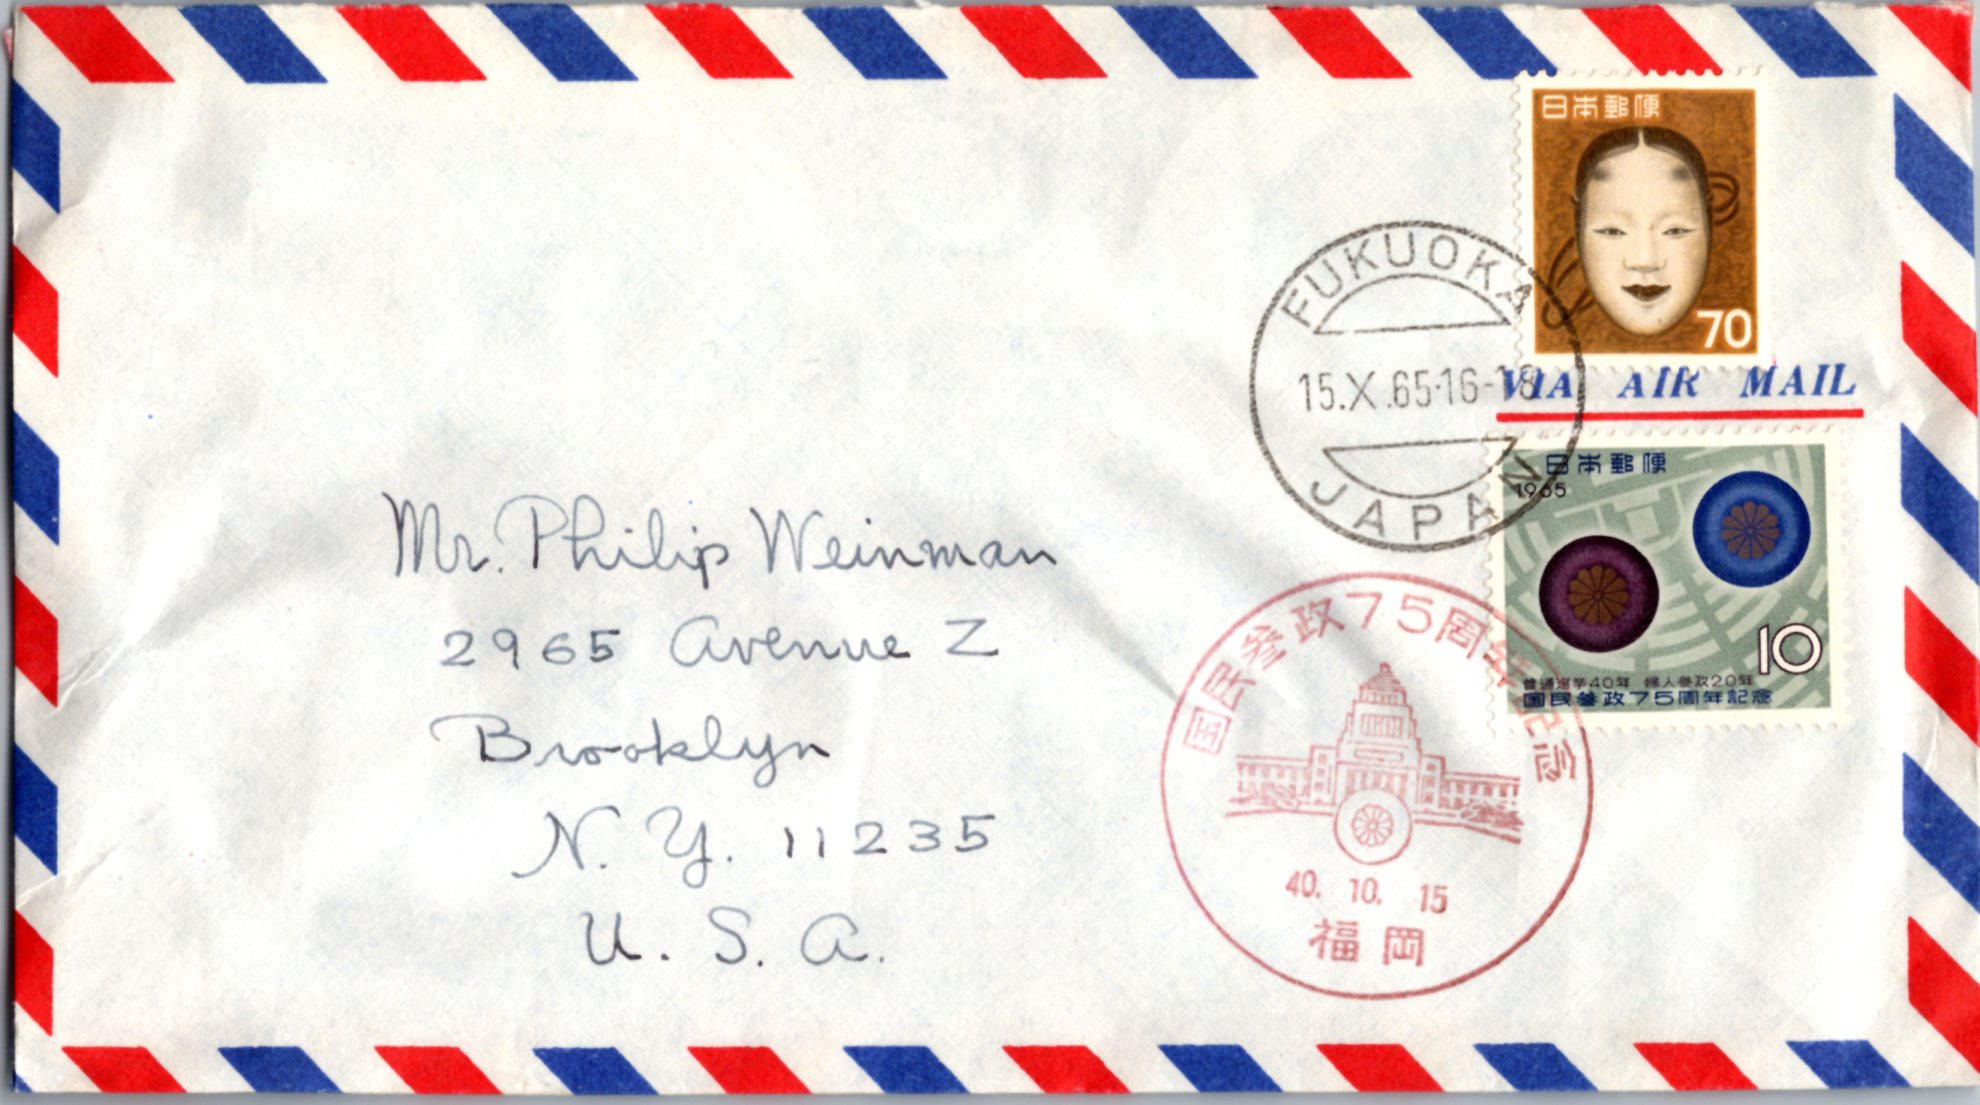 日本郵便
70
VIA AIR MAIL
FUKUOKA
15.X.65·16-18
JAPAN
日本郵便
1965
10
普通選挙40年 婦人参政20年
国民参政75周年記念
Mr. Philip Weinman
2965 Avenue Z
Brooklyn
N. Y. 11235
U. S. A.
国民参政75周年記念
40. 10. 15
福岡